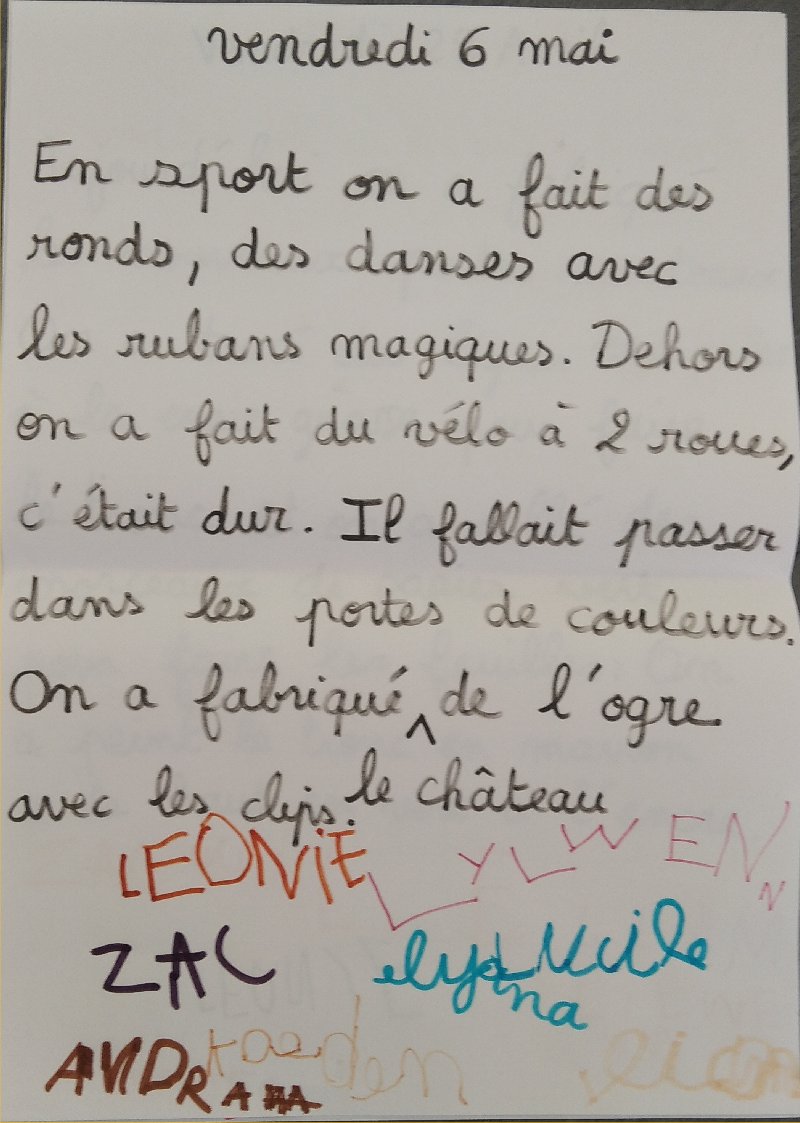 vendredi 6 mai
En sport on a fait des
ronds, des danses avec
les rubans magiques. Dehors
on a fait du vélo à 2 roues,
c'était dur. Il fallait passer
dans les portes de couleurs.
On a fabriqué ^ de l'ogre
avec les clips. le château
LEONIE LYLWENN
ZAC Lucile
ANDRAAA